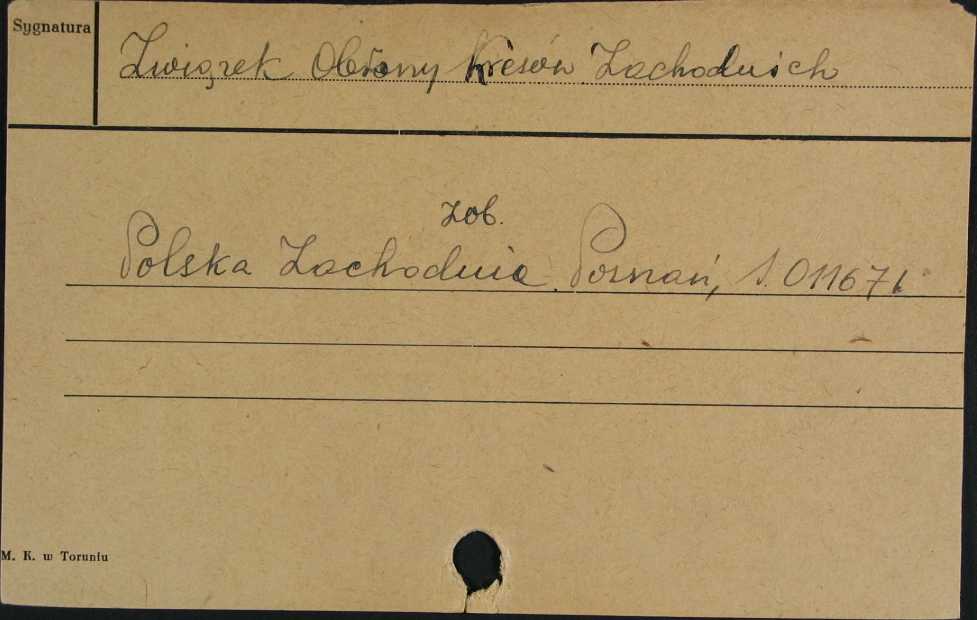 Sygnatura
Związek Obrony Kresów Zachodnich
zob.
Polska Zachodnia. Poznań, S. 011671
M. K. w Toruniu